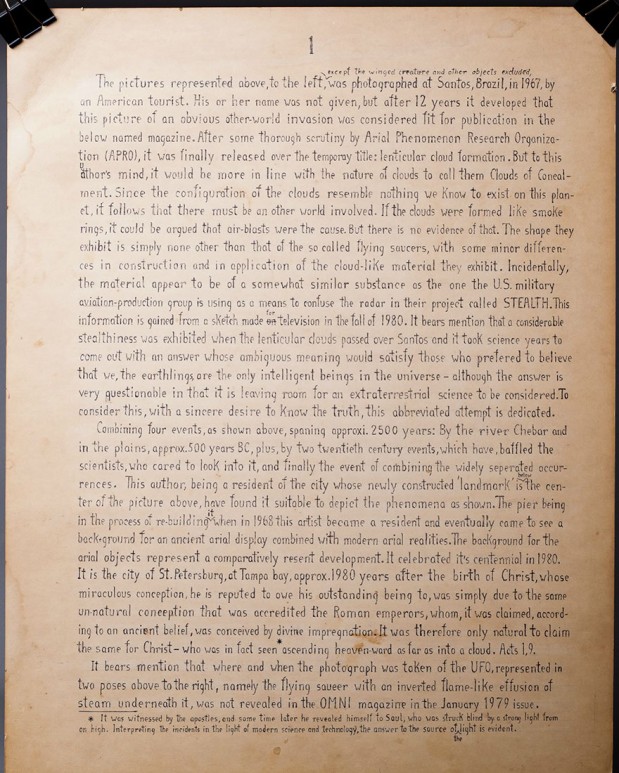 1
except the winged creature and other objects excluded,
The pictures represented above, to the left, was photographed at Santos, Brazil, in 1967, by
an American tourist. His or her name was not given, but after 12 years it developed that
this picture of an obvious other-world invasion was considered fit for publication in the
below named magazine. After some thorough scrutiny by Arial Phenomenon Research Organiza-
tion (APRO), it was finally released over the temporay title: lenticular cloud formation. But to this
author's mind, it would be more in line with the nature of clouds to call them Clouds of Conceal-
ment. Since the configuration of the clouds resemble nothing we know to exist on this plan-
et, it follows that there must be an other world involved. If the clouds were formed like smoke
rings, it could be argued that air-blasts were the cause. But there is no evidence of that. The shape they
exhibit is simply none other than that of the so called flying saucers, with some minor differen-
ces in construction and in application of the cloud-like material they exhibit. Incidentally,
the material appear to be of a somewhat similar substance as the one the U.S. military
aviation-production group is using as a means to confuse the radar in their project called STEALTH. This
information is gained from a sketch made for television in the fall of 1980. It bears mention that a considerable
stealthiness was exhibited when the lenticular clouds passed over Santos and it took science years to
come out with an answer whose ambiguous meaning would satisfy those who prefered to believe
that we, the earthlings, are the only intelligent beings in the universe – although the answer is
very questionable in that it is leaving room for an extraterrestrial science to be considered. To
consider this, with a sincere desire to know the truth, this abbreviated attempt is dedicated.
Combining four events, as shown above, spaning approxi. 2500 years: By the river Chebar and
in the plains, approx. 500 years BC, plus, by two twentieth century events, which have, baffled the
scientists, who cared to look into it, and finally the event of combining the widely seperated occur-
rences. This author, being a resident of the city whose newly constructed 'landmark' is the cen-
ter of the picture above, have found it suitable to depict the phenomena as shown. The pier being
in the process of re-building it when in 1968 this artist became a resident and eventually came to see a
back-ground for an ancient arial display combined with modern arial realities. The background for the
arial objects represent a comparatively resent development. It celebrated it's centennial in 1980.
It is the city of St. Petersburg, at Tampa bay, approx. 1980 years after the birth of Christ, whose
miraculous conception, he is reputed to owe his outstanding being to, was simply due to the same
un-natural conception that was accredited the Roman emperors, whom, it was claimed, accord-
ing to an ancient belief, was conceived by divine impregnation. It was therefore only natural to claim
the same for Christ – who was in fact seen * ascending heaven-ward as far as into a cloud. Acts 1,9.
It bears mention that where and when the photograph was taken of the UFO, represented in
two poses above to the right, namely the flying saucer with an inverted flame-like effusion of
steam underneath it, was not revealed in the OMNI magazine in the January 1979 issue.
* It was witnessed by the apostles, and some time later he revealed himself to Saul, who was struck blind by a strong light from
on high. Interpreting the incidents in the light of modern science and technology, the answer to the source of the light is evident.